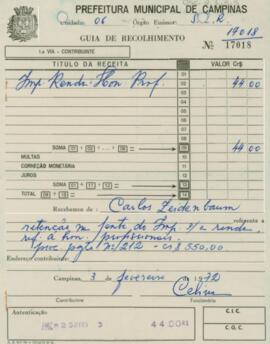 PREFEITURA MUNICIPAL DE CAMPINAS
Unidade: 06 Órgão Emissor: S.I.R.
17018
GUIA DE RECOLHIMENTO
1.a VIA - CONTRIBUINTE Nº 17018
TÍTULO DA RECEITA VALOR Cr$
Imp. Renda Hon. Prof. 01 44.00
02
SOMA 01 + 02 + ... + 08 = 09 44.00
MULTAS 10
CORREÇÃO MONETÁRIA 11
JUROS 12
SOMA 10 + 11 + 12 = 13
TOTAL 09 + 13 = 14
Recebemos de: Carlos Zeidenbaum
referente a
retenção na fonte do Imp s/a renda,
ref. a hon. profissionais.
proc. pgto nº 212 - Cr$ 550,00
Endereço contribuinte:
Campinas, 3 de fevereiro de 1972
Contribuinte Funcionário
Autenticação C.I.C.
44.00
C.G.C.